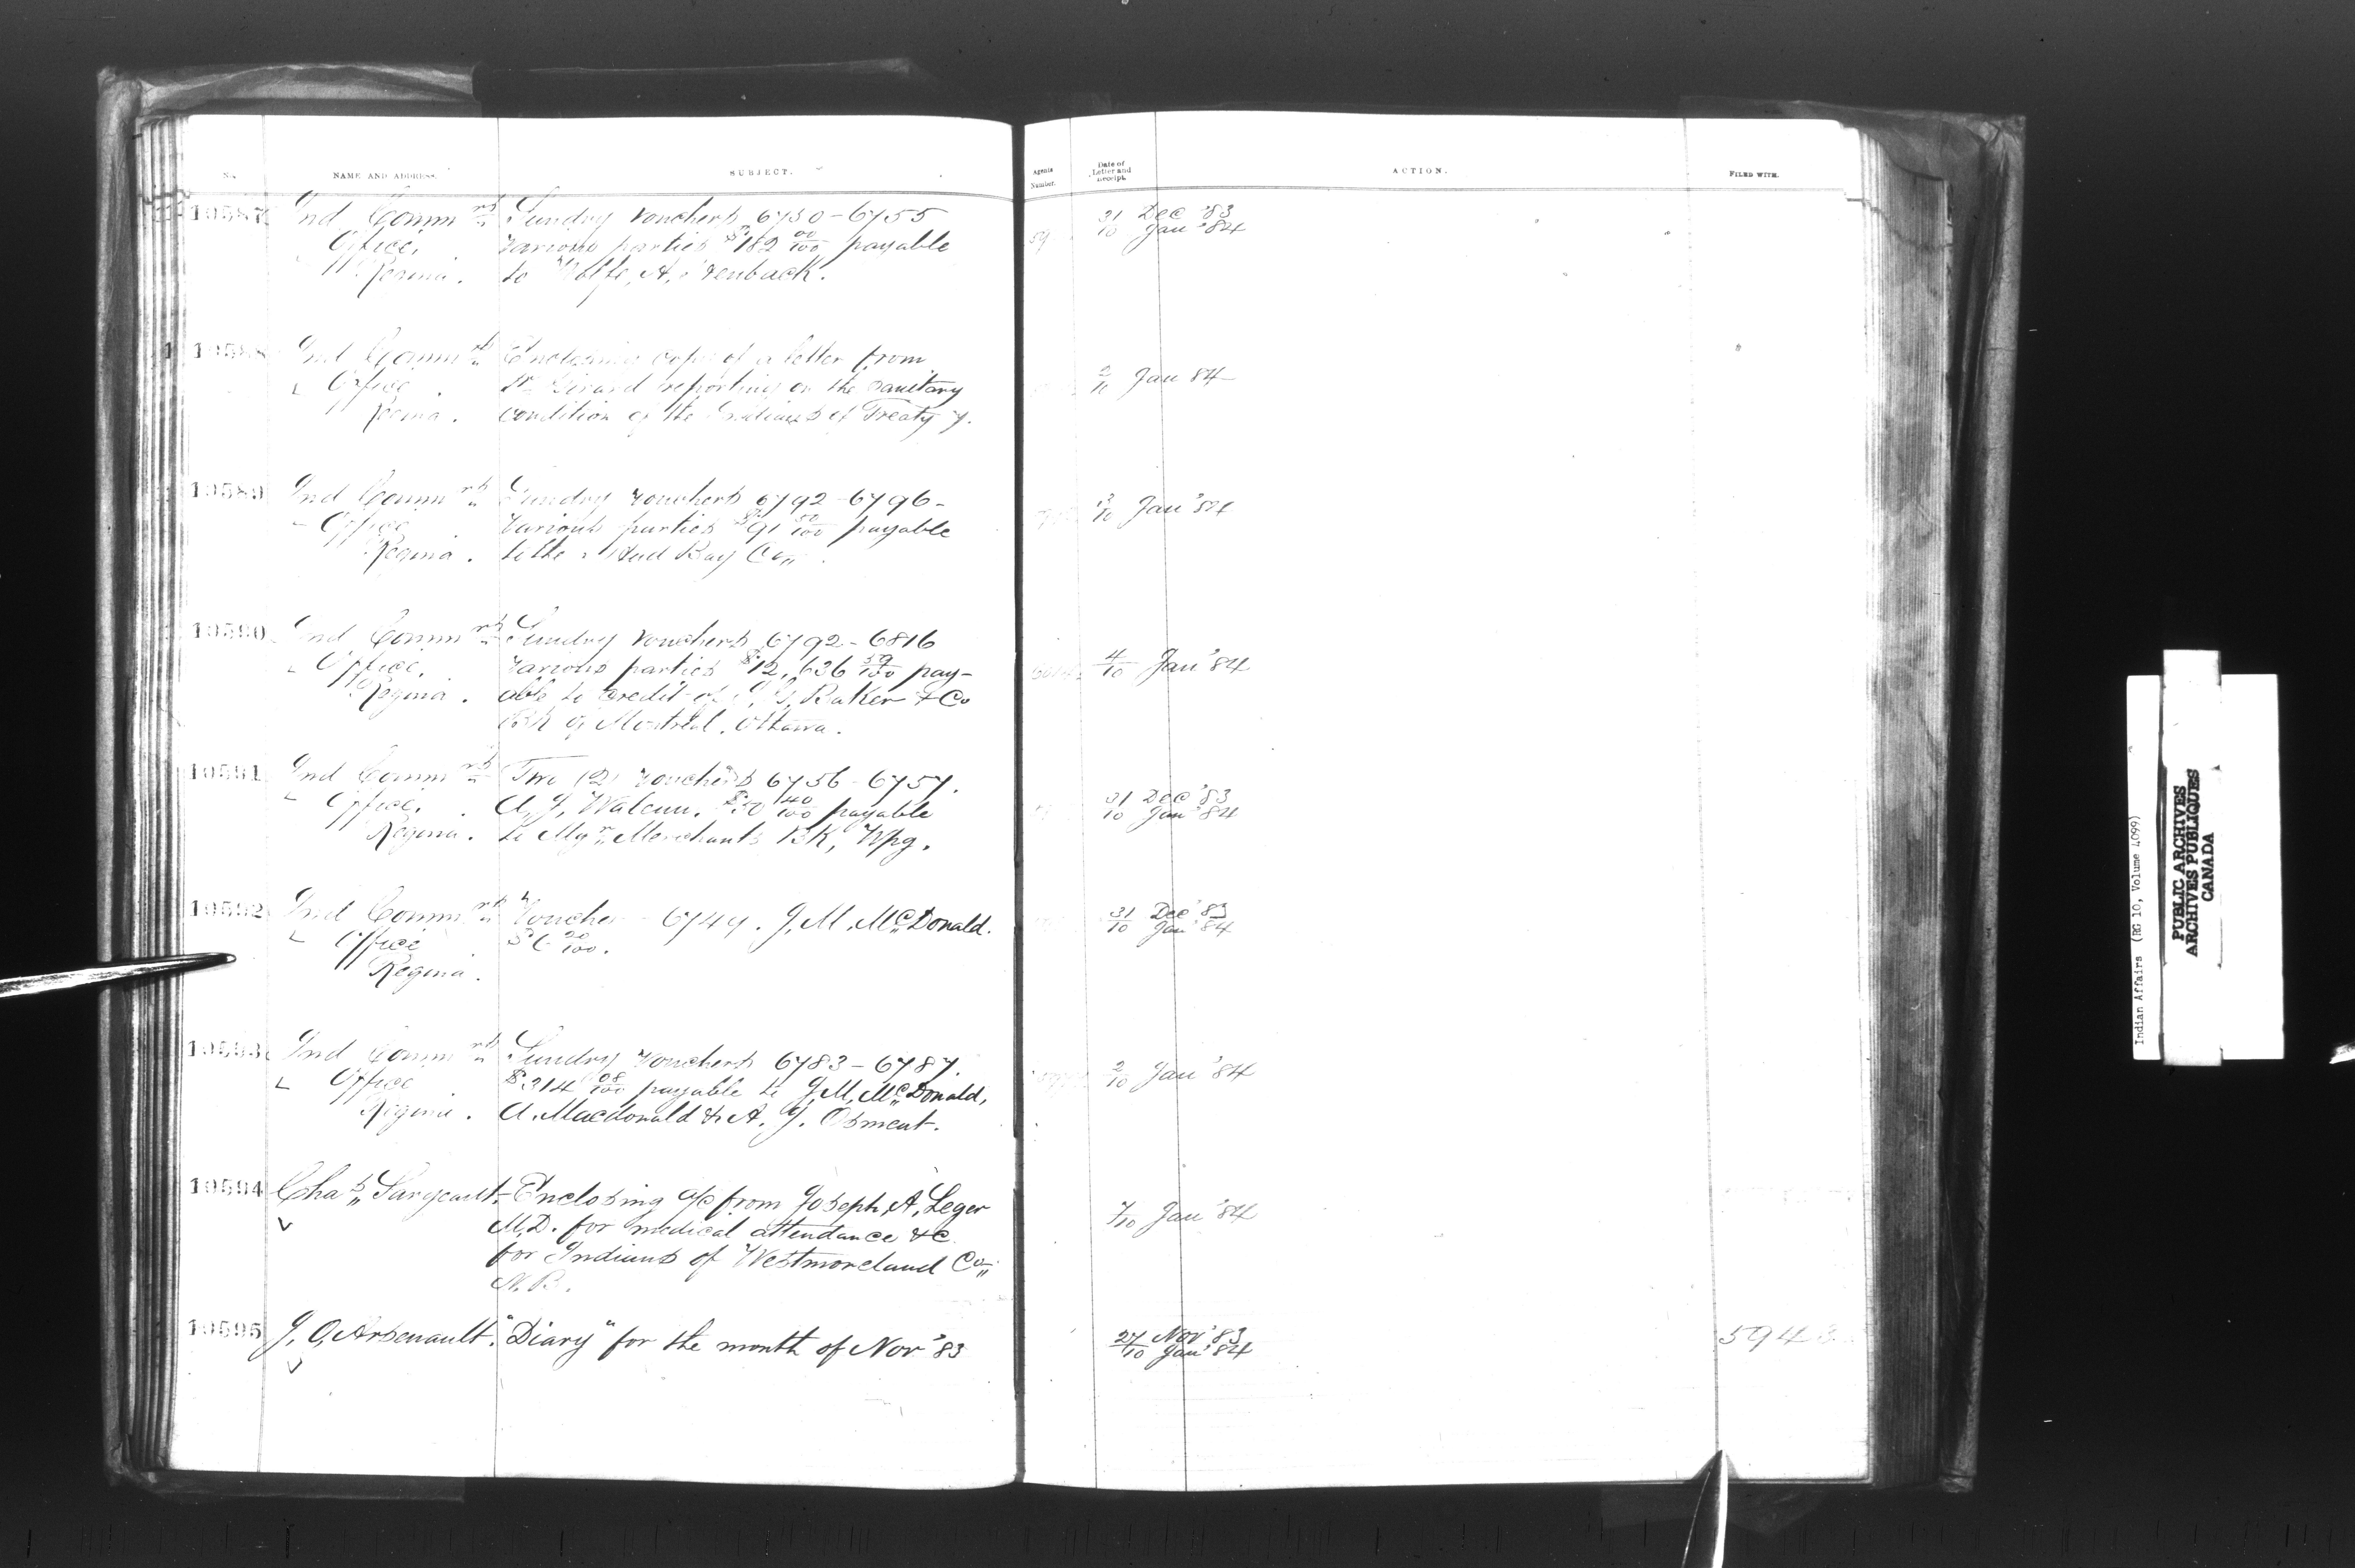 No.
NAME AND ADDRESS.
SUBJECT.
Agents Number.
Date of Letter and receipt.
ACTION.
FILED WITH.
10587
Ind Comm rs
Office,
Regina.
Sundry vouchers 6750-6755
various parties $182 00/100 payable
to
31 Dec '83
10 Jan '84
10588
Ind Comm rs
Office
Regina.
Enclosing copy of a letter from
Dr Girard reporting on the sanitary
condition of the Indians of Treaty 7.
2/11 Jan 84
10589
Ind Comm rs
Office
Regina.
Sundry vouchers 6792-6796-
Various parties $91 payable
to the Hud Bay Co
Jan '84
10590
Ind Comm rs
Office,
Regina.
Sundry vouchers 6792-6816
various parties $12,636 59/100 pay-
able to credit of I. G. Baker & Co
Bk of Montreal. Ottawa.
4/10 Jan '84
10591
Ind Comm rs
Office,
Regina.
Two (2) vouchers 6756-6757.
payable
to Mgr Merchants Bk, Wpg.
31 Dec '83
10 Jan '84
10592
Ind Comm rs
Office
Regina.
Voucher - 6749. J. M. McDonald.
$6 20/100.
31 Dec '83
10 Jan '84
10593
Ind Comm rs
Office
Regina.
Sundry vouchers 6783-6787.
$314 08/100 payable to J. M. McDonald,
A. Macdonald & A. J. Osment.
2/10 Jan '84
10594
Chas Sargeant.
Enclosing a/c from Joseph A. Leger
M.D. for medical attendance &c
for Indians of Westmoreland Co
N.B.
7/10 Jan '84
10595
J. O. Arsenault.
"Diary" for the month of Nov '83
27 Nov '83
10 Jan '84
594
Indian Affairs (RG 10, Volume 4099)
PUBLIC ARCHIVES
ARCHIVES PUBLIQUES
CANADA